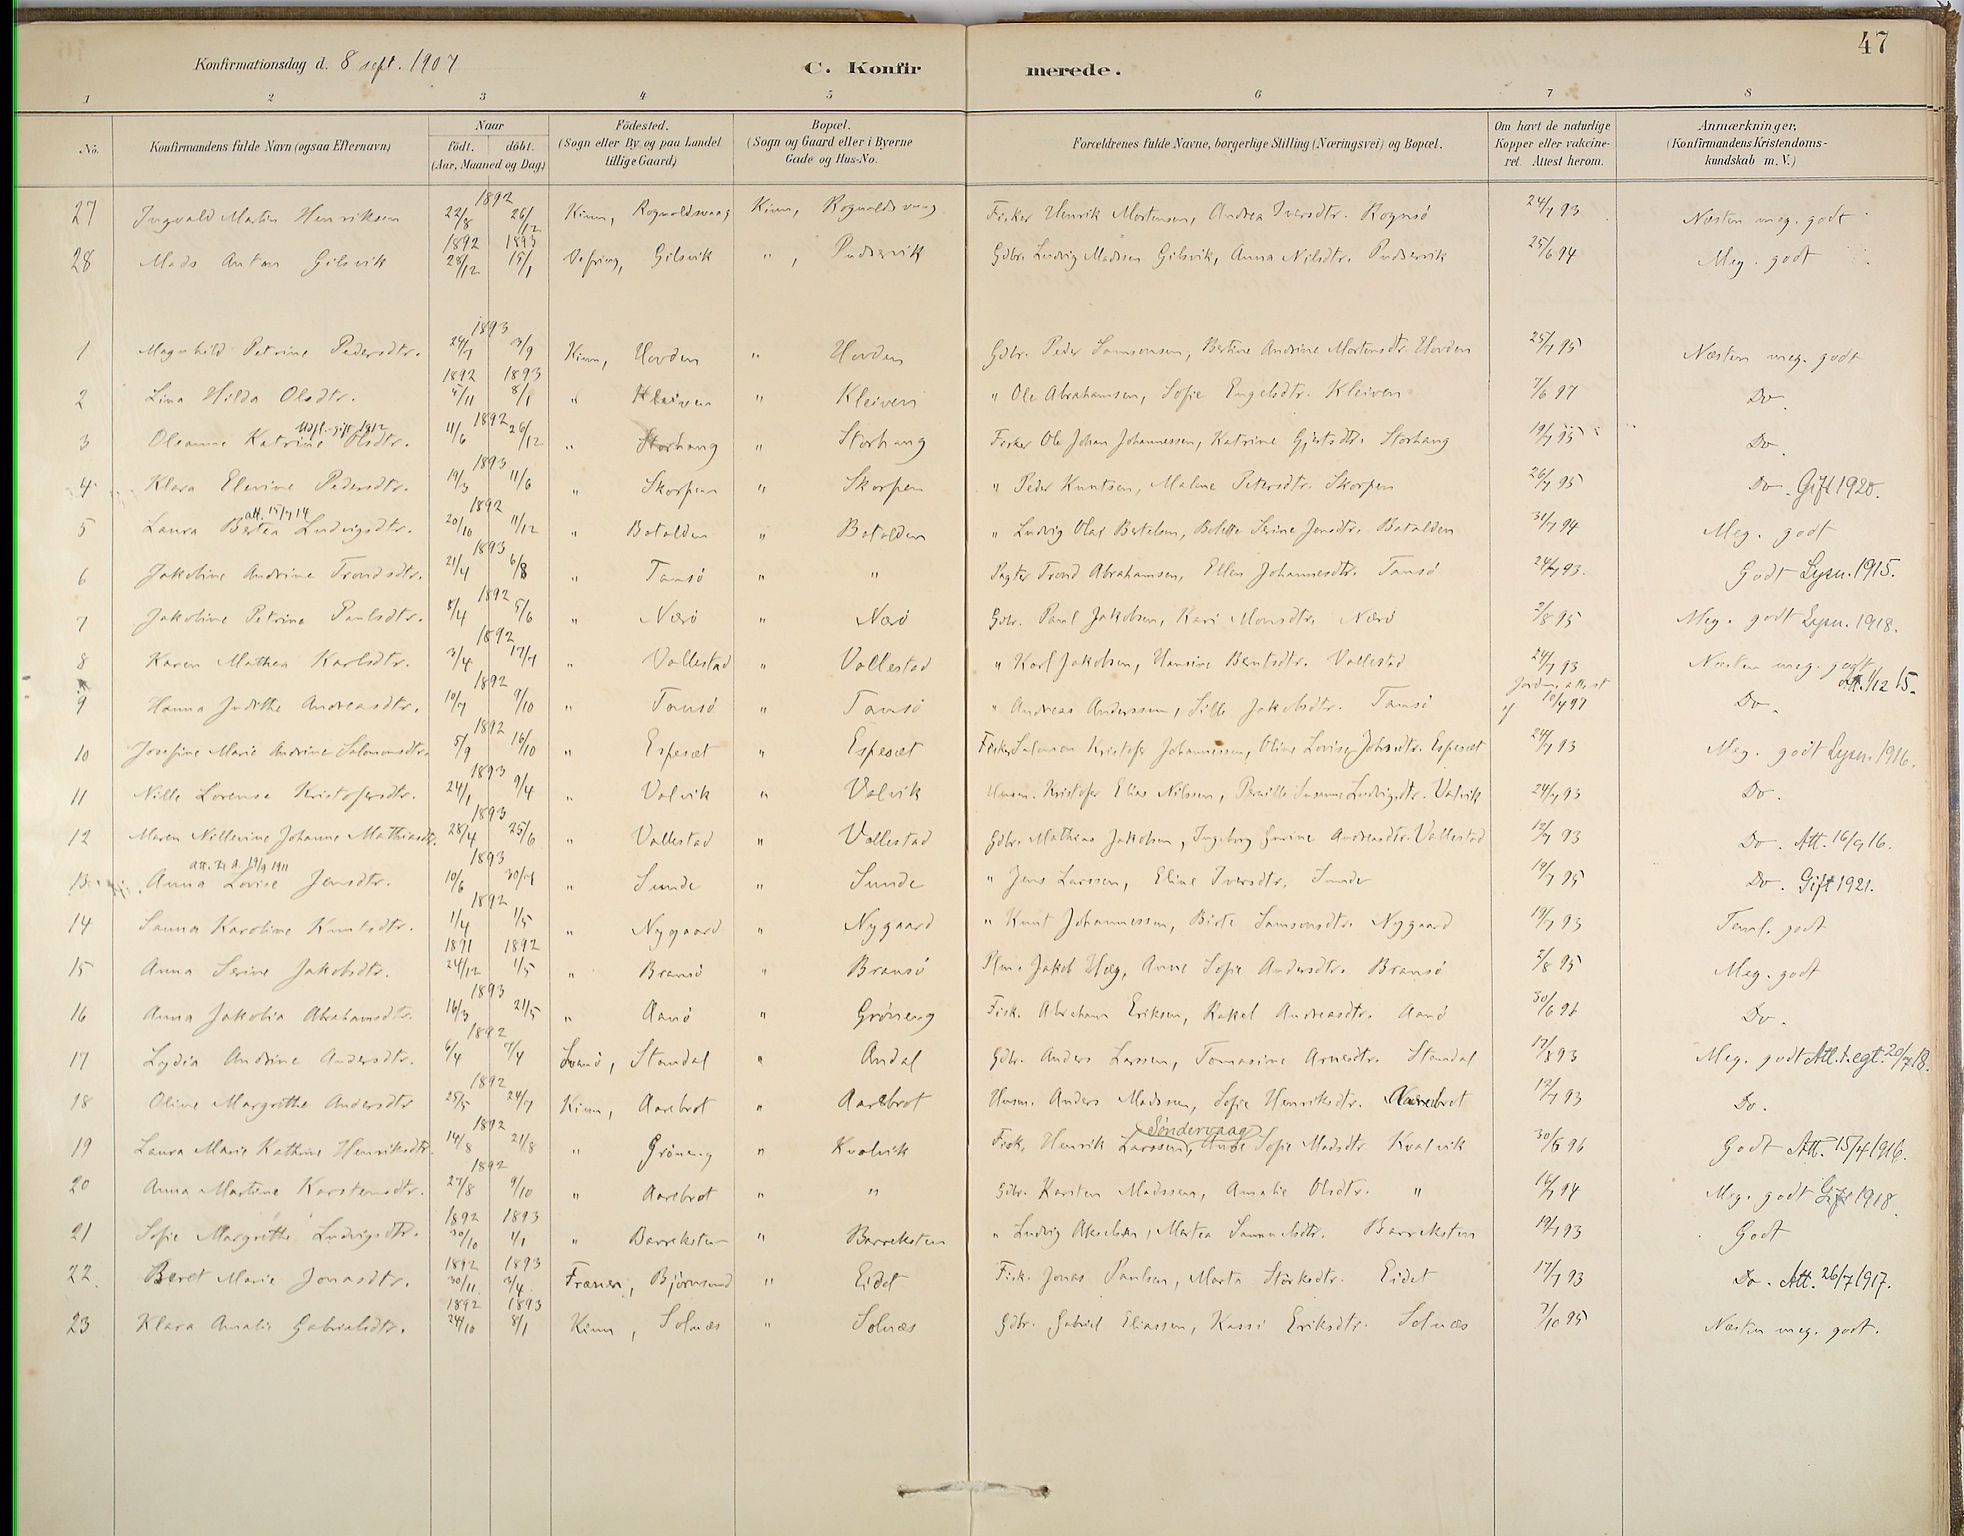 47
Konfirmationsdag d. 8 sept. 1907
C. Konfir merede.
1 2 3 4 5 6 7 8
No. Konfirmandens fulde Navn (ogsaa Efternavn) Naar födt. döbt. (Aar, Maaned og Dag) Födested. (Sogn eller By og paa Landet tillige Gaard) Bopæl. (Sogn og Gaard eller i Byerne Gade og Hus-No. Forældrenes fulde Navne, borgerlige Stilling (Næringsvei) og Bopæl. Om havt de naturlige Kopper eller vakcineret. Attest herom. Anmærkninger, (Konfirmandens Kristendomskundskab m. V.)
27 Ingvald Martin Henriksen 1892 22/8 26/12 Kinn, Rognaldsvaag Kinn, Rognaldsvaag Fisker Henrik Mortensen, Andrea Iversdtr. Rognsö 24/7 93 Næsten meg. godt
28 Mads Anton Gilsvik 1892 28/12 1893 15/1 Gilsvik " , Pudservik Gdbr. Ludvig Madssen Gilsvik, Anna Nilsdtr. Pudservik 25/6 94 Meg. godt
1 Magnhild Petrine Pedersdtr. 1893 24/7 3/9 Kinn, Hovden " Hovden Gdbr. Peder Samsonsen, Bertine Andrine Mortensdtr. Hovden 25/7 95 Næsten meg. godt
2 Lina Hilda Olsdtr. 1892 5/11 1893 8/1 " Kleiven " Kleiven " Ole Abrahamsen, Sofie Engelsdtr. Kleiven 7/6 97 Do.
Udfl.-gift 1912
3 Oleanne Katrine Olsdtr. 1892 11/6 26/12 " Storhaug " Storhaug Fisker Ole Johan Johannessen, Katrine Gjertsdtr. Storhaug 19/7 95 Do.
4 Klara Elevine Pedersdtr. 1893 19/3 11/6 " Skorpen " Skorpen " Peder Knutsen, Malene Petersdtr. Skorpen 26/7 95 Do. Gift 1920.
att. 15/7 14
5 Laura Bertea Ludvigsdtr. 1892 20/10 11/12 " Batalden " Batalden " Ludvig Olai Bertelsen, Bolette Serine Jensdtr. Batalden 31/7 94 Meg. godt
6 Jakobine Andrine Trondsdtr. 1893 21/4 6/8 " Tansö " " Trond Abrahamsen, Ellen Johannesdtr. Tansö 24/7 93. Godt Lysn. 1915.
7 Jakobine Petrine Paulsdtr. 1892 8/4 5/6 " Nærö " Nærö Gdbr. Paul Jakobsen, Kari Monsdtr. Nærö 2/8 95 Meg. godt Lysn. 1918.
8 Karen Mathea Karlsdtr. 1892 3/4 17/7 " Vallestad " Vallestad " Karl Jakobsen, Hansine Berntsdtr. Vallestad 24/7 93 Næsten meg. godt
Att. 1/12 15.
9 Hanna Judithe Andreasdtr. 1892 10/7 9/10 " Tansö " Tansö " Andreas Anderssen, Sille Jakobsdtr. Tansö Jordm. attest af 10/4 97 Do.
10 Josefine Marie Andrine Salomonsdtr. 1892 5/9 16/10 " Espeset " Espeset Fisker Salomon Kristofer Johannessen, Oline Lovise Johsdtr. Espeset 24/7 93 Meg. godt Lysn. 1916.
11 Nille Lorense Kristofersdtr. 1893 24/1 9/4 " Valvik " Valvik Husm. Kristofer Elias Nilssen, Pernille Susanne Ludvigsdtr. Valvik 24/7 93 Do.
12 Maren Nillevine Johanne Mathiasdtr. 1893 28/4 25/6 " Vallestad " Vallestad Gdbr. Mathias Jakobsen, Ingeborg Gurine Andreasdtr. Vallestad 12/7 93 Do. Att. 16/9 16.
att. 19/9 1911
13 Anna Lovise Jensdtr. 1893 10/6 30/7 " Sunde " Sunde " Jens Larssen, Eline Iversdtr. Sunde 19/7 95 Do. Gift 1921.
14 Sanna Karoline Knutsdtr. 1892 1/4 1/5 " Nygaard " Nygaard " Knut Johannessen, Birte Samsonsdtr. Nygaard 19/7 93 Teml. godt
15 Anna Serine Jakobsdtr. 1891 24/12 1892 1/5 " Bransö " Bransö Jakob Hæg, Anne Sofie Andersdtr. Bransö 2/8 95 Meg. godt
16 Anna Jakobia Abrahamsdtr. 1893 16/3 21/5 " Aanö " Gröneng Fisk. Abraham Eriksen, Rakel Andreasdtr. Aanö 30/6 96 Do.
17 Lydia Andrine Andersdtr. 1892 6/4 7/4 Svanö, Standal " Andal Gdbr. Anders Larssen, Tomasine Arnesdtr. Standal 17/8 93 Meg. godt Att. t. egt. 20/7 18.
18 Oline Margrethe Andersdtr 1892 25/5 24/7 Kinn, Aarebrot " Aarebrot Husm. Anders Madssen, Sofie Henriksdtr. Aarebrot 12/7 93 Do.
Söndervaag
19 Laura Marie Kathrine Henriksdtr. 1892 14/8 21/8 " Gröneng " Kvalvik Fisk. Henrik Larssen, Anne Sofie Madsdtr. Kvalvik 30/6 96 Godt Att. 15/4 1916.
20 Anna Martine Karstensdtr. 1892 27/8 9/10 " Aarebrot " " Gdbr. Karsten Madssen, Amalie Olsdtr. " 16/7 94 Meg. godt Gift 1918.
21 Sofie Margrethe Ludvigsdtr. 1892 30/10 1893 1/1 " Barreksten " Barreksten " Ludvig Akselsen, Martea Samuelsdtr. Barreksten 19/7 93 Godt
22. Beret Marie Jonasdtr. 1892 30/11 1893 3/4 Frænen, Bjørnsund " Eidet Fisk. Jonas Paulsen, Marta Störksdtr. Eidet 17/7 93 Do. Att. 26/7 1917.
23 Klara Amalie Gabrielsdtr. 1892 24/10 1893 8/1 Kinn, Solnæs " Solnæs Gdbr. Gabriel Eliassen, Kassi Eriksdtr. Solnæs 7/10 95 Næsten meg. godt.